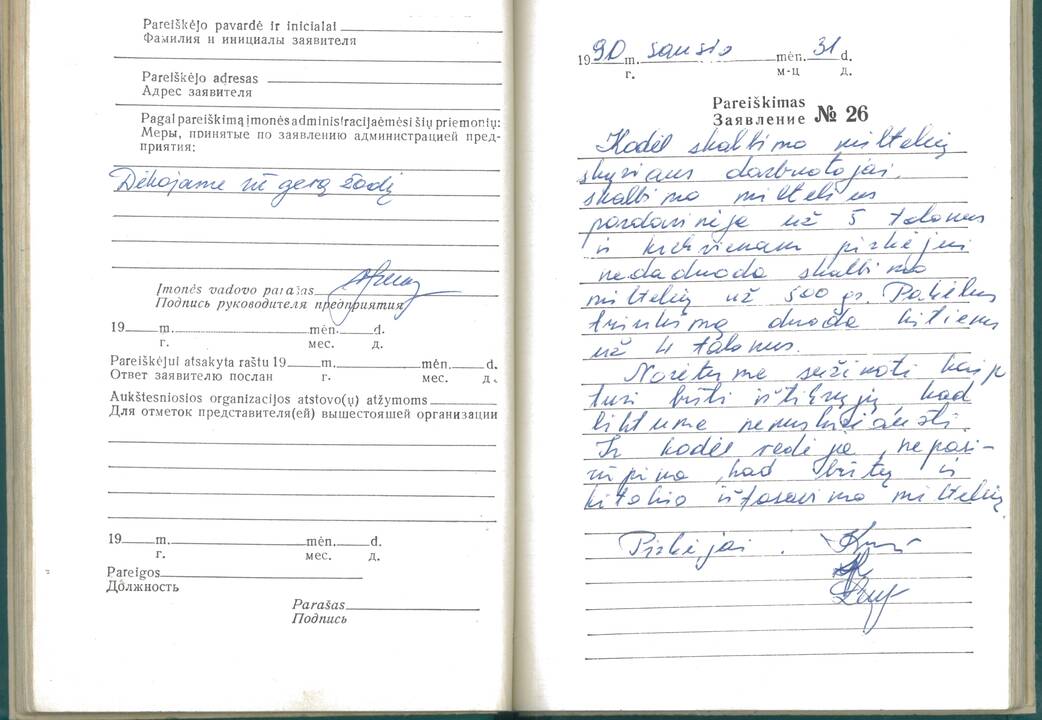 Pareiškėjo pavardė ir inicialai
Фамилия и инициалы заявителя
Pareiškėjo adresas
Адрес заявителя
Pagal pareiškimą įmonės administracija ėmėsi šių priemonių:
Меры, принятые по заявлению администрацией пред-
приятия:
Dėkojame už gerą žodį
Įmonės vadovo parašas
Подпись руководителя предприятия
19 m. mėn. d.
г. мес. д.
Pareiškėjui atsakyta raštu 19 m. mėn. d.
Ответ заявителю послан г. мес. д.
Aukštesniosios organizacijos atstovo(ų) atžymoms
Для отметок представителя(ей) вышестоящей организации
19 m. mėn. d.
г. мес. д.
Pareigos
Должность
Parašas
Подпись
1990 m. sausio mėn. 31 d.
г. м-ц д.
Pareiškimas
Заявление № 26
Kodėl skalbimo miltelių
skyriaus darbuotojai.
skalbimo miltelius
pardavinėja už 5 talonus
ir kiekvienam pirkėjui
nedaduoda skalbimo
miltelių už 500 gr. Pakėlus
triukšmą duoda kitiems
už 4 talonus.
Norėtume sužinoti kaip
turi būti ištikrųjų kad
liktume nenuskriausti.
Ir kodėl vedėja nepasi-
rūpina, kad būtų ir
kitokio išfasavimo miltelių.
Pirkėjai.